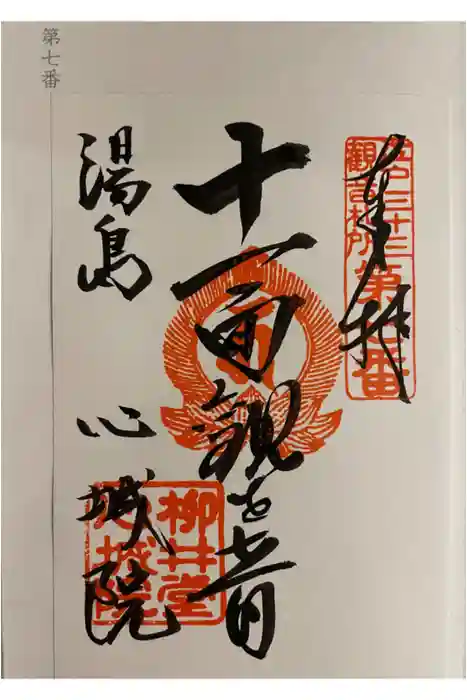 第七番
奉拝
江戸三十三
観音札所第七番
十一面観世音
湯島
心城院
柳井堂
心城院